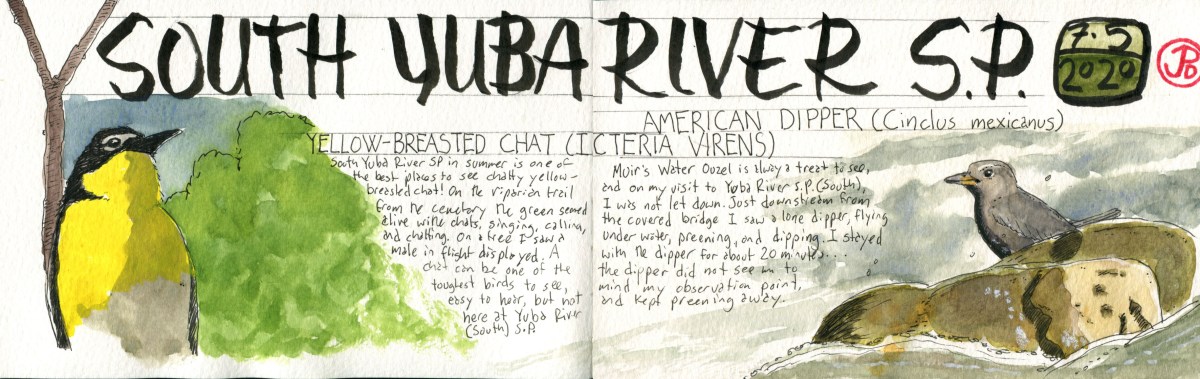 SOUTH YUBA RIVER S.P.
7.5
2020
JPD
YELLOW-BREASTED CHAT (ICTERIA VIRENS)
South Yuba River SP in summer is one of
the best places to see chatty yellow-
breasted chat! On the riparion trail
from the cemetory the green seemed
alive withe chats, singing, calling,
and chatting. On a tree I saw a
male in flight displayed. A
chat can be one of the
toughest birds to see,
easy to hear, but not
here at Yuba River
(South) S.P.
AMERICAN DIPPER (Cinclus mexicanus)
Muir's Water Ouzel is alway a treat to see,
and on my visit to Yuba River S.P. (South),
I was not let down. Just downstream from
the covered bridge I saw a lone dipper, flying
under water, preening, and dipping. I stayed
with the dipper for about 20 minutes...
the dipper did not seem to
mind my observation point,
and kept preening away.